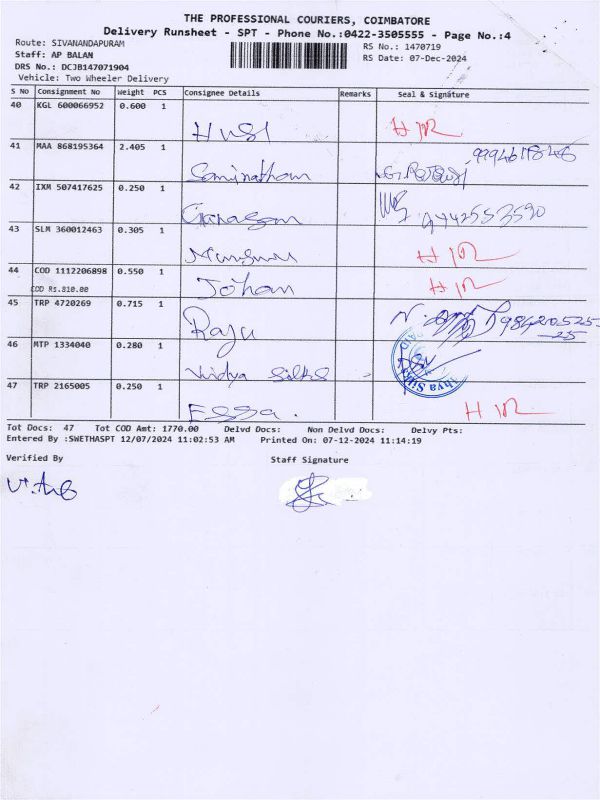 THE PROFESSIONAL COURIERS, COIMBATORE
Delivery Runsheet - SPT - Phone No.:0422-3505555 - Page No.:4
Route: SIVANANDAPURAM
RS No.: 1470719
Staff: AP BALAN
RS Date: 07-Dec-2024
DRS No.: DCJB147071904
Vehicle: Two Wheeler Delivery
S No Consignment No Weight PCS Consignee Details Remarks Seal & Signature
40 KGL 600066952 0.600 1
41 MAA 868195364 2.405 1
Saminathan
42 IXM 507417625 0.250 1
9442553590
43 SLM 360012463 0.305 1
44 COD 1112206898 0.550 1
COD Rs.810.00
Johan
45 TRP 4720269 0.715 1
Raju
46 MTP 1334040 0.280 1
Vidya Silks
47 TRP 2165005 0.250 1
Essa.
Tot Docs: 47 Tot COD Amt: 1770.00 Delvd Docs: Non Delvd Docs: Delvy Pts:
Entered By :SWETHASPT 12/07/2024 11:02:53 AM Printed On: 07-12-2024 11:14:19
Verified By Staff Signature